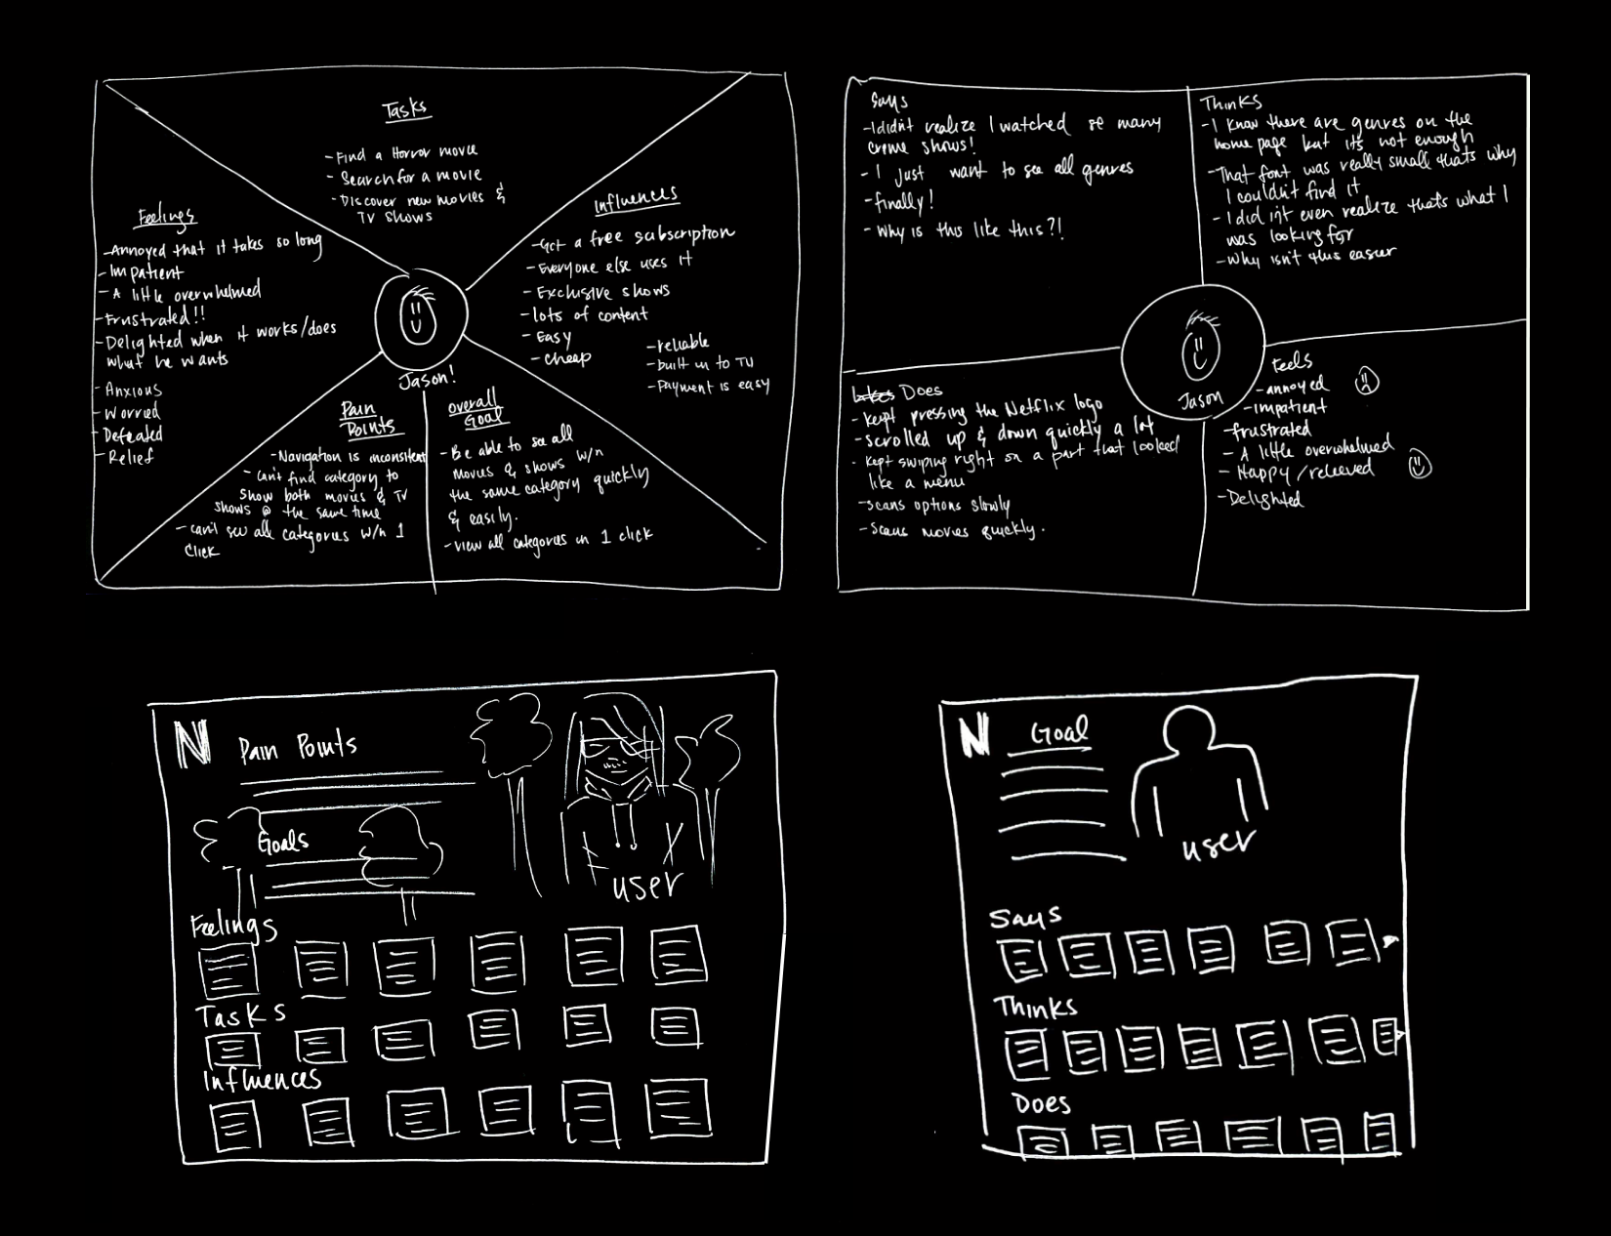 Tasks
- Find a Horror movie
- Search for a movie
- Discover new movies &
TV shows
Feelings
- Annoyed that it takes so long
- Impatient
- A little overwhelmed
- Frustrated!!
- Delighted when it works/does
what he wants
- Anxious
- Worried
- Defeated
- Relief
Influences
- Got a free subscription
- Everyone else uses it
- Exclusive shows
- lots of content
- Easy
- cheap
- reliable
- built in to TV
- Payment is easy
Jason!
Pain
Points
- Navigation is inconsistent
- Can't find category to
show both movies & TV
shows @ the same time
- can't see all categories w/n 1
click
Overall
Goal
- Be able to see all
movies & shows w/n
the same category quickly
& easily.
- View all categories in 1 click
Says
- I didn't realize I watched so many
crime shows!
- I just want to see all genres
- Finally!
- Why is this like this?!
Thinks
- I know there are genres on the
home page but it's not enough
- That font was really small thats why
I couldn't find it
- I didn't even realize thats what I
was looking for
- Why isn't this easier
Jason
Does
- Kept pressing the Netflix logo
- Scrolled up & down quickly a lot
- Kept swiping right on a part that looked
like a menu
- Scans options slowly
- Scans movies quickly.
Feels
- annoyed
- Impatient
- frustrated
- A little overwhelmed
- Happy/relieved
- Delighted
N
Pain Points
Goals
user
Feelings
Tasks
Influences
N
Goal
user
Says
Thinks
Does